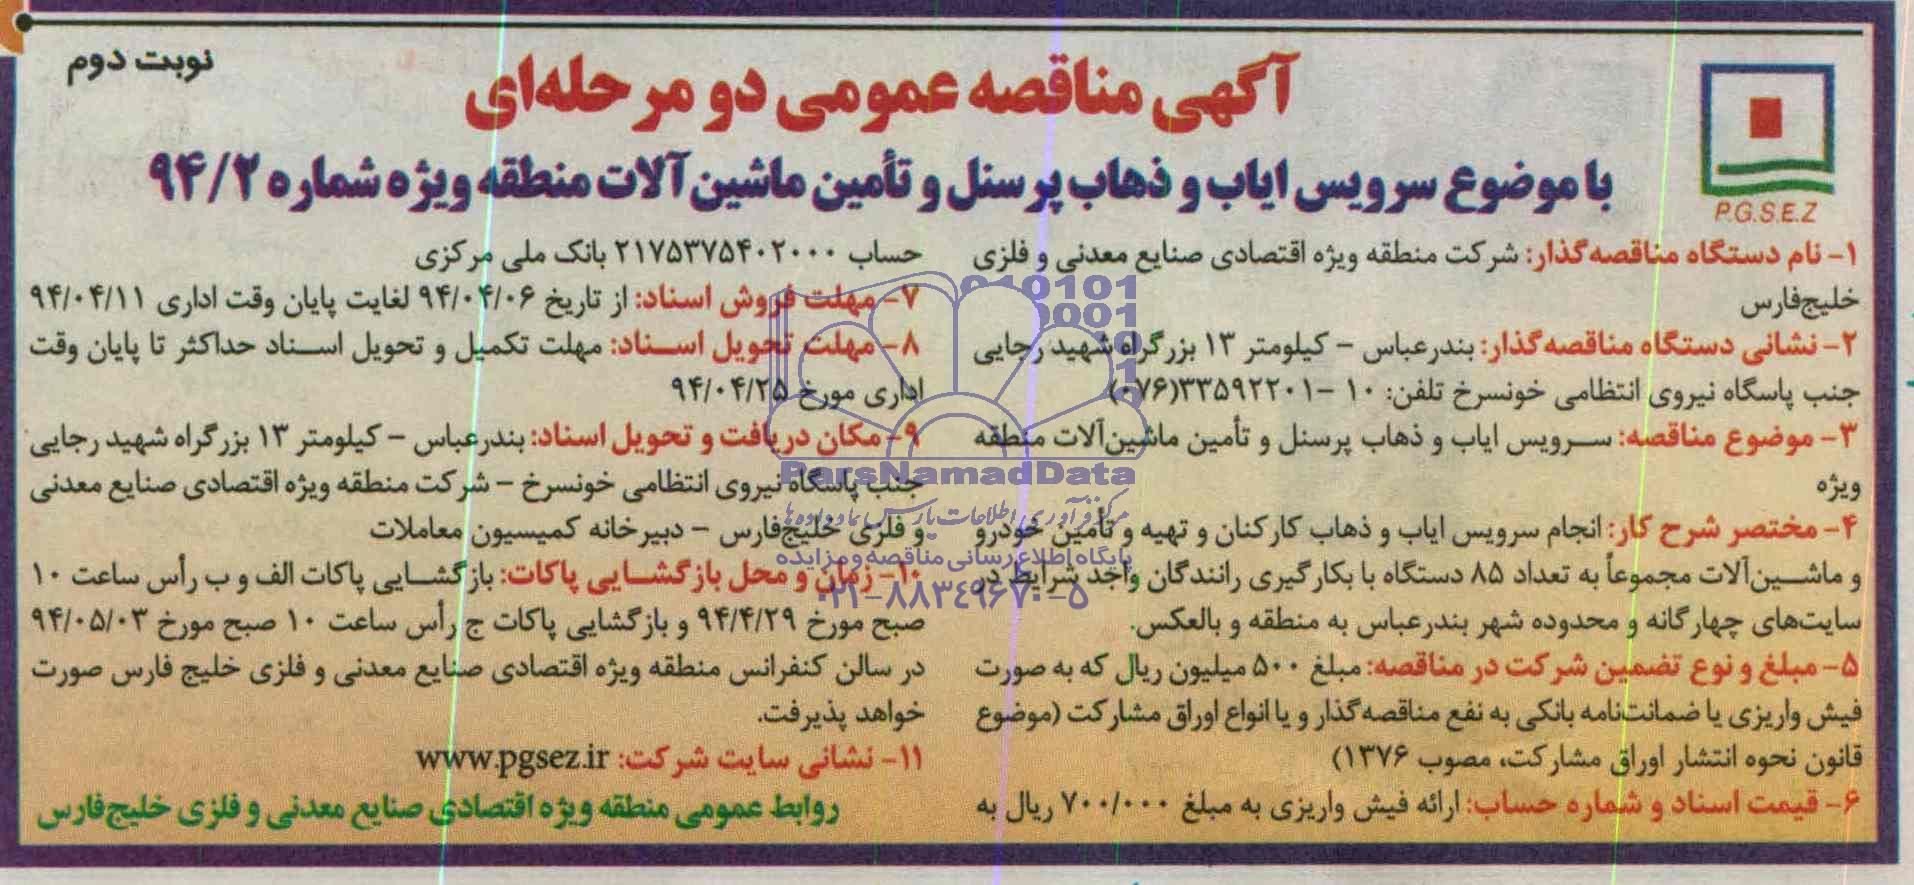 نوبت دوم
آگهی مناقصه عمومی دو مرحله‌ای
با موضوع سرویس ایاب و ذهاب پرسنل و تأمین ماشین آلات منطقه ویژه شماره ۹۴/۲
P.G.S.E.Z
۱- نام دستگاه مناقصه‌گذار: شرکت منطقه ویژه اقتصادی صنایع معدنی و فلزی
خلیج‌فارس
۲- نشانی دستگاه مناقصه‌گذار: بندرعباس – کیلومتر ۱۳ بزرگراه شهید رجایی
جنب پاسگاه نیروی انتظامی خونسرخ تلفن: ۱۰ –۳۳۵۹۲۲۰۱(۰۷۶)
۳- موضوع مناقصه: سرویس ایاب و ذهاب پرسنل و تأمین ماشین‌آلات منطقه
ویژه
۴- مختصر شرح کار: انجام سرویس ایاب و ذهاب کارکنان و تهیه و تأمین خودرو
و ماشین‌آلات مجموعاً به تعداد ۸۵ دستگاه با بکارگیری رانندگان واجد شرایط در
سایت‌های چهارگانه و محدوده شهر بندرعباس به منطقه و بالعکس.
۵- مبلغ و نوع تضمین شرکت در مناقصه: مبلغ ۵۰۰ میلیون ریال که به صورت
فیش واریزی یا ضمانت‌نامه بانکی به نفع مناقصه‌گذار و یا انواع اوراق مشارکت (موضوع
قانون نحوه انتشار اوراق مشارکت، مصوب ۱۳۷۶)
۶- قیمت اسناد و شماره حساب: ارائه فیش واریزی به مبلغ ۷۰۰/۰۰۰ ریال به
حساب ۲۱۷۵۳۷۵۴۰۲۰۰۰ بانک ملی مرکزی
۷- مهلت فروش اسناد: از تاریخ ۹۴/۰۴/۰۶ لغایت پایان وقت اداری ۹۴/۰۴/۱۱
۸- مهلت تحویل اسناد: مهلت تکمیل و تحویل اسناد حداکثر تا پایان وقت
اداری مورخ ۹۴/۰۴/۲۵
۹- مکان دریافت و تحویل اسناد: بندرعباس – کیلومتر ۱۳ بزرگراه شهید رجایی
جنب پاسگاه نیروی انتظامی خونسرخ – شرکت منطقه ویژه اقتصادی صنایع معدنی
و فلزی خلیج‌فارس – دبیرخانه کمیسیون معاملات
۱۰- زمان و محل بازگشایی پاکات: بازگشایی پاکات الف و ب رأس ساعت ۱۰
صبح مورخ ۹۴/۴/۲۹ و بازگشایی پاکات ج رأس ساعت ۱۰ صبح مورخ ۹۴/۰۵/۰۳
در سالن کنفرانس منطقه ویژه اقتصادی صنایع معدنی و فلزی خلیج فارس صورت
خواهد پذیرفت.
۱۱- نشانی سایت شرکت: www.pgsez.ir
روابط عمومی منطقه ویژه اقتصادی صنایع معدنی و فلزی خلیج‌فارس
ParsNamadData
مرکز فرآوری اطلاعات پارس نماد داده‌ها
پایگاه اطلاع رسانی مناقصه و مزایده
۰۲۱-۸۸۳۴۹۶۷۰-۵